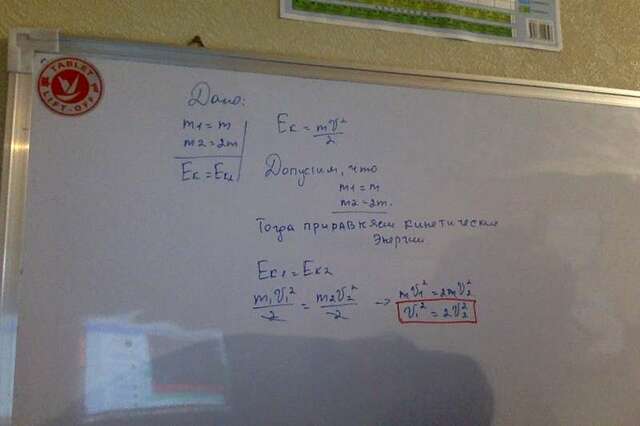 TABLET
LIFT-OFF
Дано:
m1 = m
m2 = 2m
Eк = Eк2
Eк = mv²/2
Допустим, что
m1 = m
m2 = 2m.
Тогда приравняем кинетические
Энергии
Eк1 = Eк2
m₁v₁²/2 = m₂v₂²/2 → mv₁² = 2mv₂²
v₁² = 2v₂²